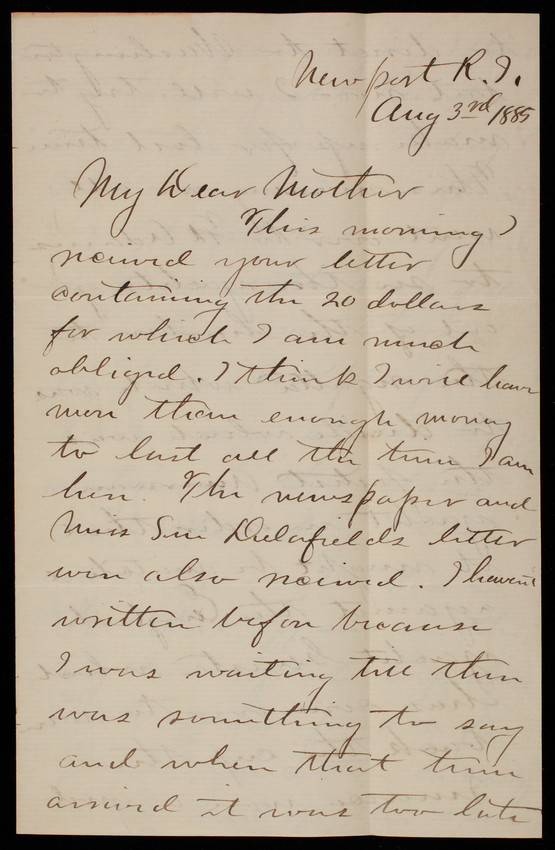 Newport R.I.
Aug 3rd 1885
My Dear Mother
This morning I
received your letter
containing the 20 dollars
for which I am much
obliged. I think I will have
more than enough money
to last all the time I am
here. The newspaper and
Miss Sue Delafields letter
were also received. I haven't
written before because
I was waiting till there
was something to say
and when that time
arrived it was too late